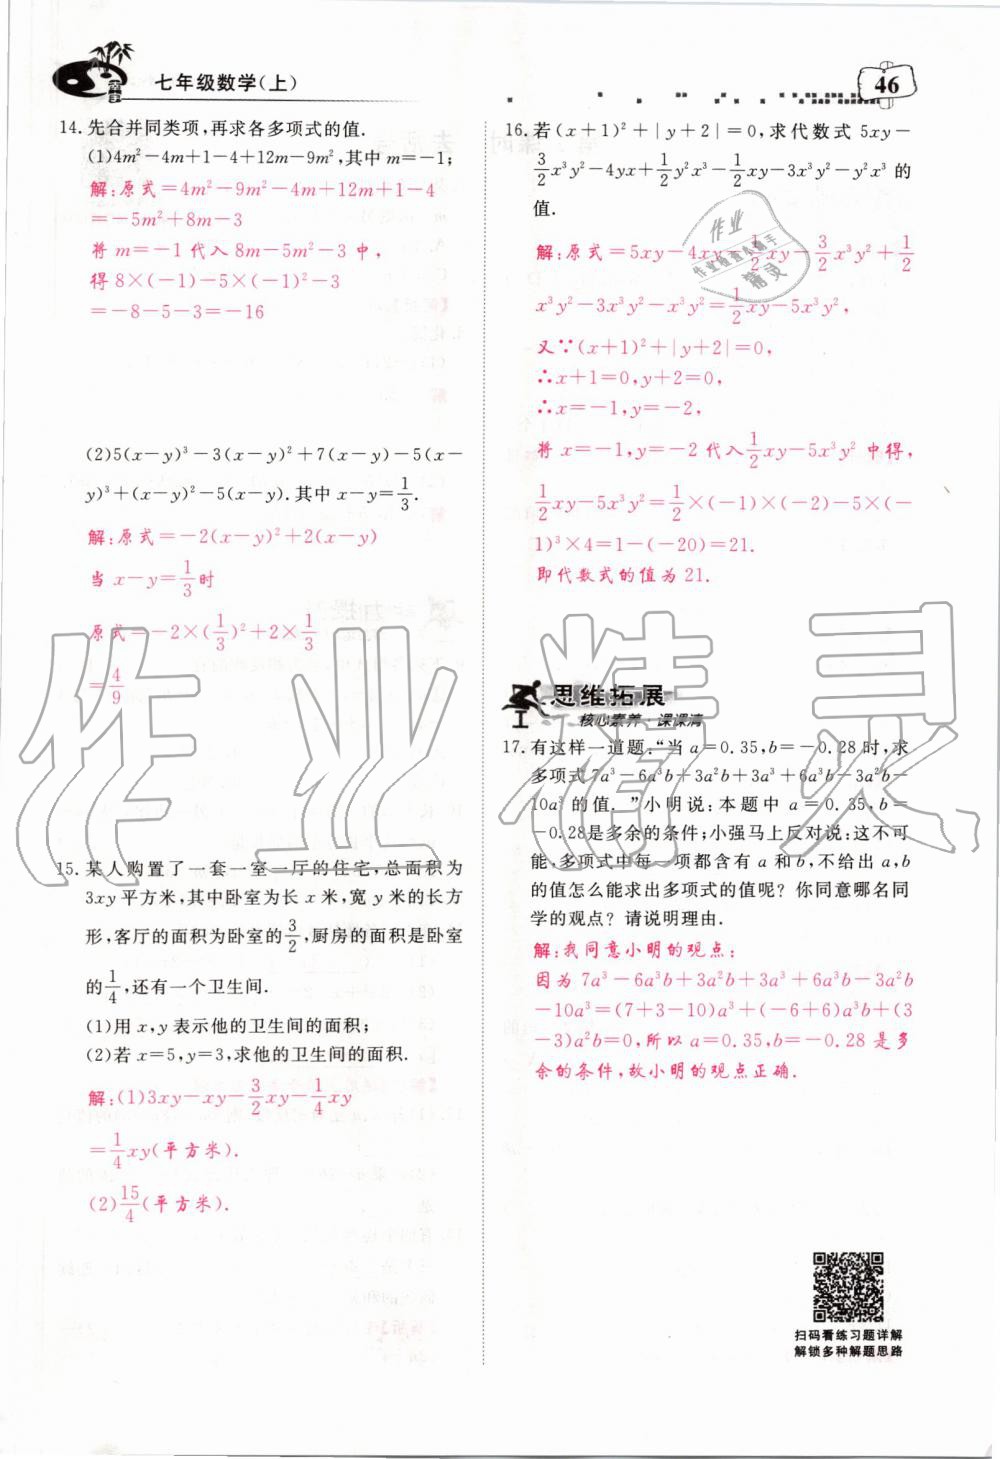 七年级数学(上)
46
14.先合并同类项,再求各多项式的值.
(1)4m²-4m+1-4+12m-9m²,其中 m=-1;
解:原式=4m²-9m²-4m+12m+1-4
=-5m²+8m-3
将 m=-1 代入 8m-5m²-3 中,
得 8×(-1)-5×(-1)²-3
=-8-5-3=-16
(2)5(x-y)³-3(x-y)²+7(x-y)-5(x-
y)³+(x-y)²-5(x-y).其中 x-y=1/3.
解:原式=-2(x-y)²+2(x-y)
当 x-y=1/3时
原式=-2×(1/3)²+2×1/3
=4/9
15.某人购置了一套一室一厅的住宅,总面积为
3xy 平方米,其中卧室为长 x 米,宽 y 米的长方
形,客厅的面积为卧室的3/2,厨房的面积是卧室
的1/4,还有一个卫生间.
(1)用 x,y 表示他的卫生间的面积;
(2)若 x=5,y=3,求他的卫生间的面积.
解:(1)3xy-xy-3/2xy-1/4xy
=1/4xy(平方米).
(2)15/4(平方米).
16.若(x+1)²+|y+2|=0,求代数式 5xy-
3/2x³y²-4yx+1/2y²x³-1/2xy-3x³y²-y²x³ 的
值.
解:原式=5xy-4xy-1/2xy-3/2x³y²+1/2
x³y²-3x³y²-x³y²=1/2xy-5x³y²,
又∵(x+1)²+|y+2|=0,
∴x+1=0,y+2=0,
∴x=-1,y=-2,
将 x=-1,y=-2 代入1/2xy-5x³y² 中得,
1/2xy-5x³y²=1/2×(-1)×(-2)-5×(-
1)³×4=1-(-20)=21.
即代数式的值为 21.
思维拓展
核心素养·课课清
17.有这样一道题:“当 a=0.35,b=-0.28 时,求
多项式 7a³-6a³b+3a²b+3a³+6a³b-3a²b-
10a³ 的值.”小明说:本题中 a=0.35,b=
-0.28是多余的条件;小强马上反对说:这不可
能,多项式中每一项都含有 a 和 b,不给出 a,b
的值怎么能求出多项式的值呢?你同意哪名同
学的观点?请说明理由.
解:我同意小明的观点:
因为 7a³-6a³b+3a²b+3a³+6a³b-3a²b
-10a³=(7+3-10)a³+(-6+6)a³b+(3
-3)a²b=0,所以 a=0.35,b=-0.28 是多
余的条件,故小明的观点正确.
扫码看练习题详解
解锁多种解题思路
作业精灵